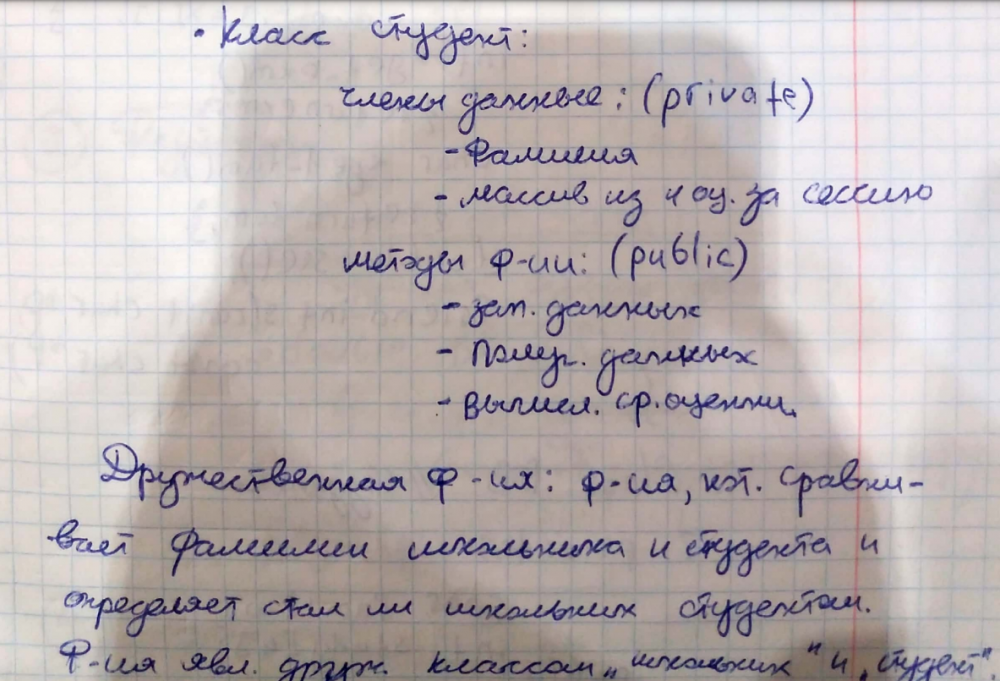 • Класс студент:
члены данные: (private)
- Фамилия
- массив из 4 оц. за сессию
методы ф-ии: (public)
- зап. данных
- Получ. данных
- Вычисл. ср. оценки.
Дружественная ф-ия: ф-ия, кот. сравни-
вает фамилии школьника и студента и
определяет стал ли школьник студентом.
Ф-ия явл. друж. классам „школьник" и „студент".